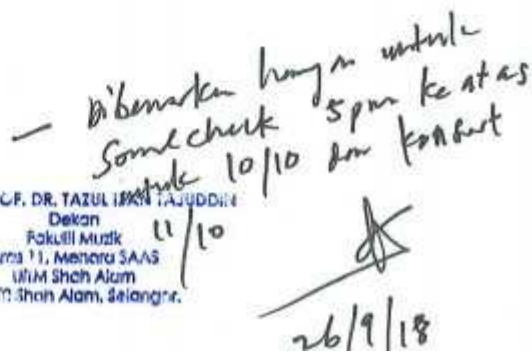 — Dibenarkan hanya untuk
Soundcheck 5pm ke atas
untuk 10/10 dan konsert
11/10
OF. DR. TAZUL IZAN TAJUDDIN
Dekan
Fakulti Muzik
11, Menara SAAS
UiTM Shah Alam
Shah Alam, Selangor.
26/9/18